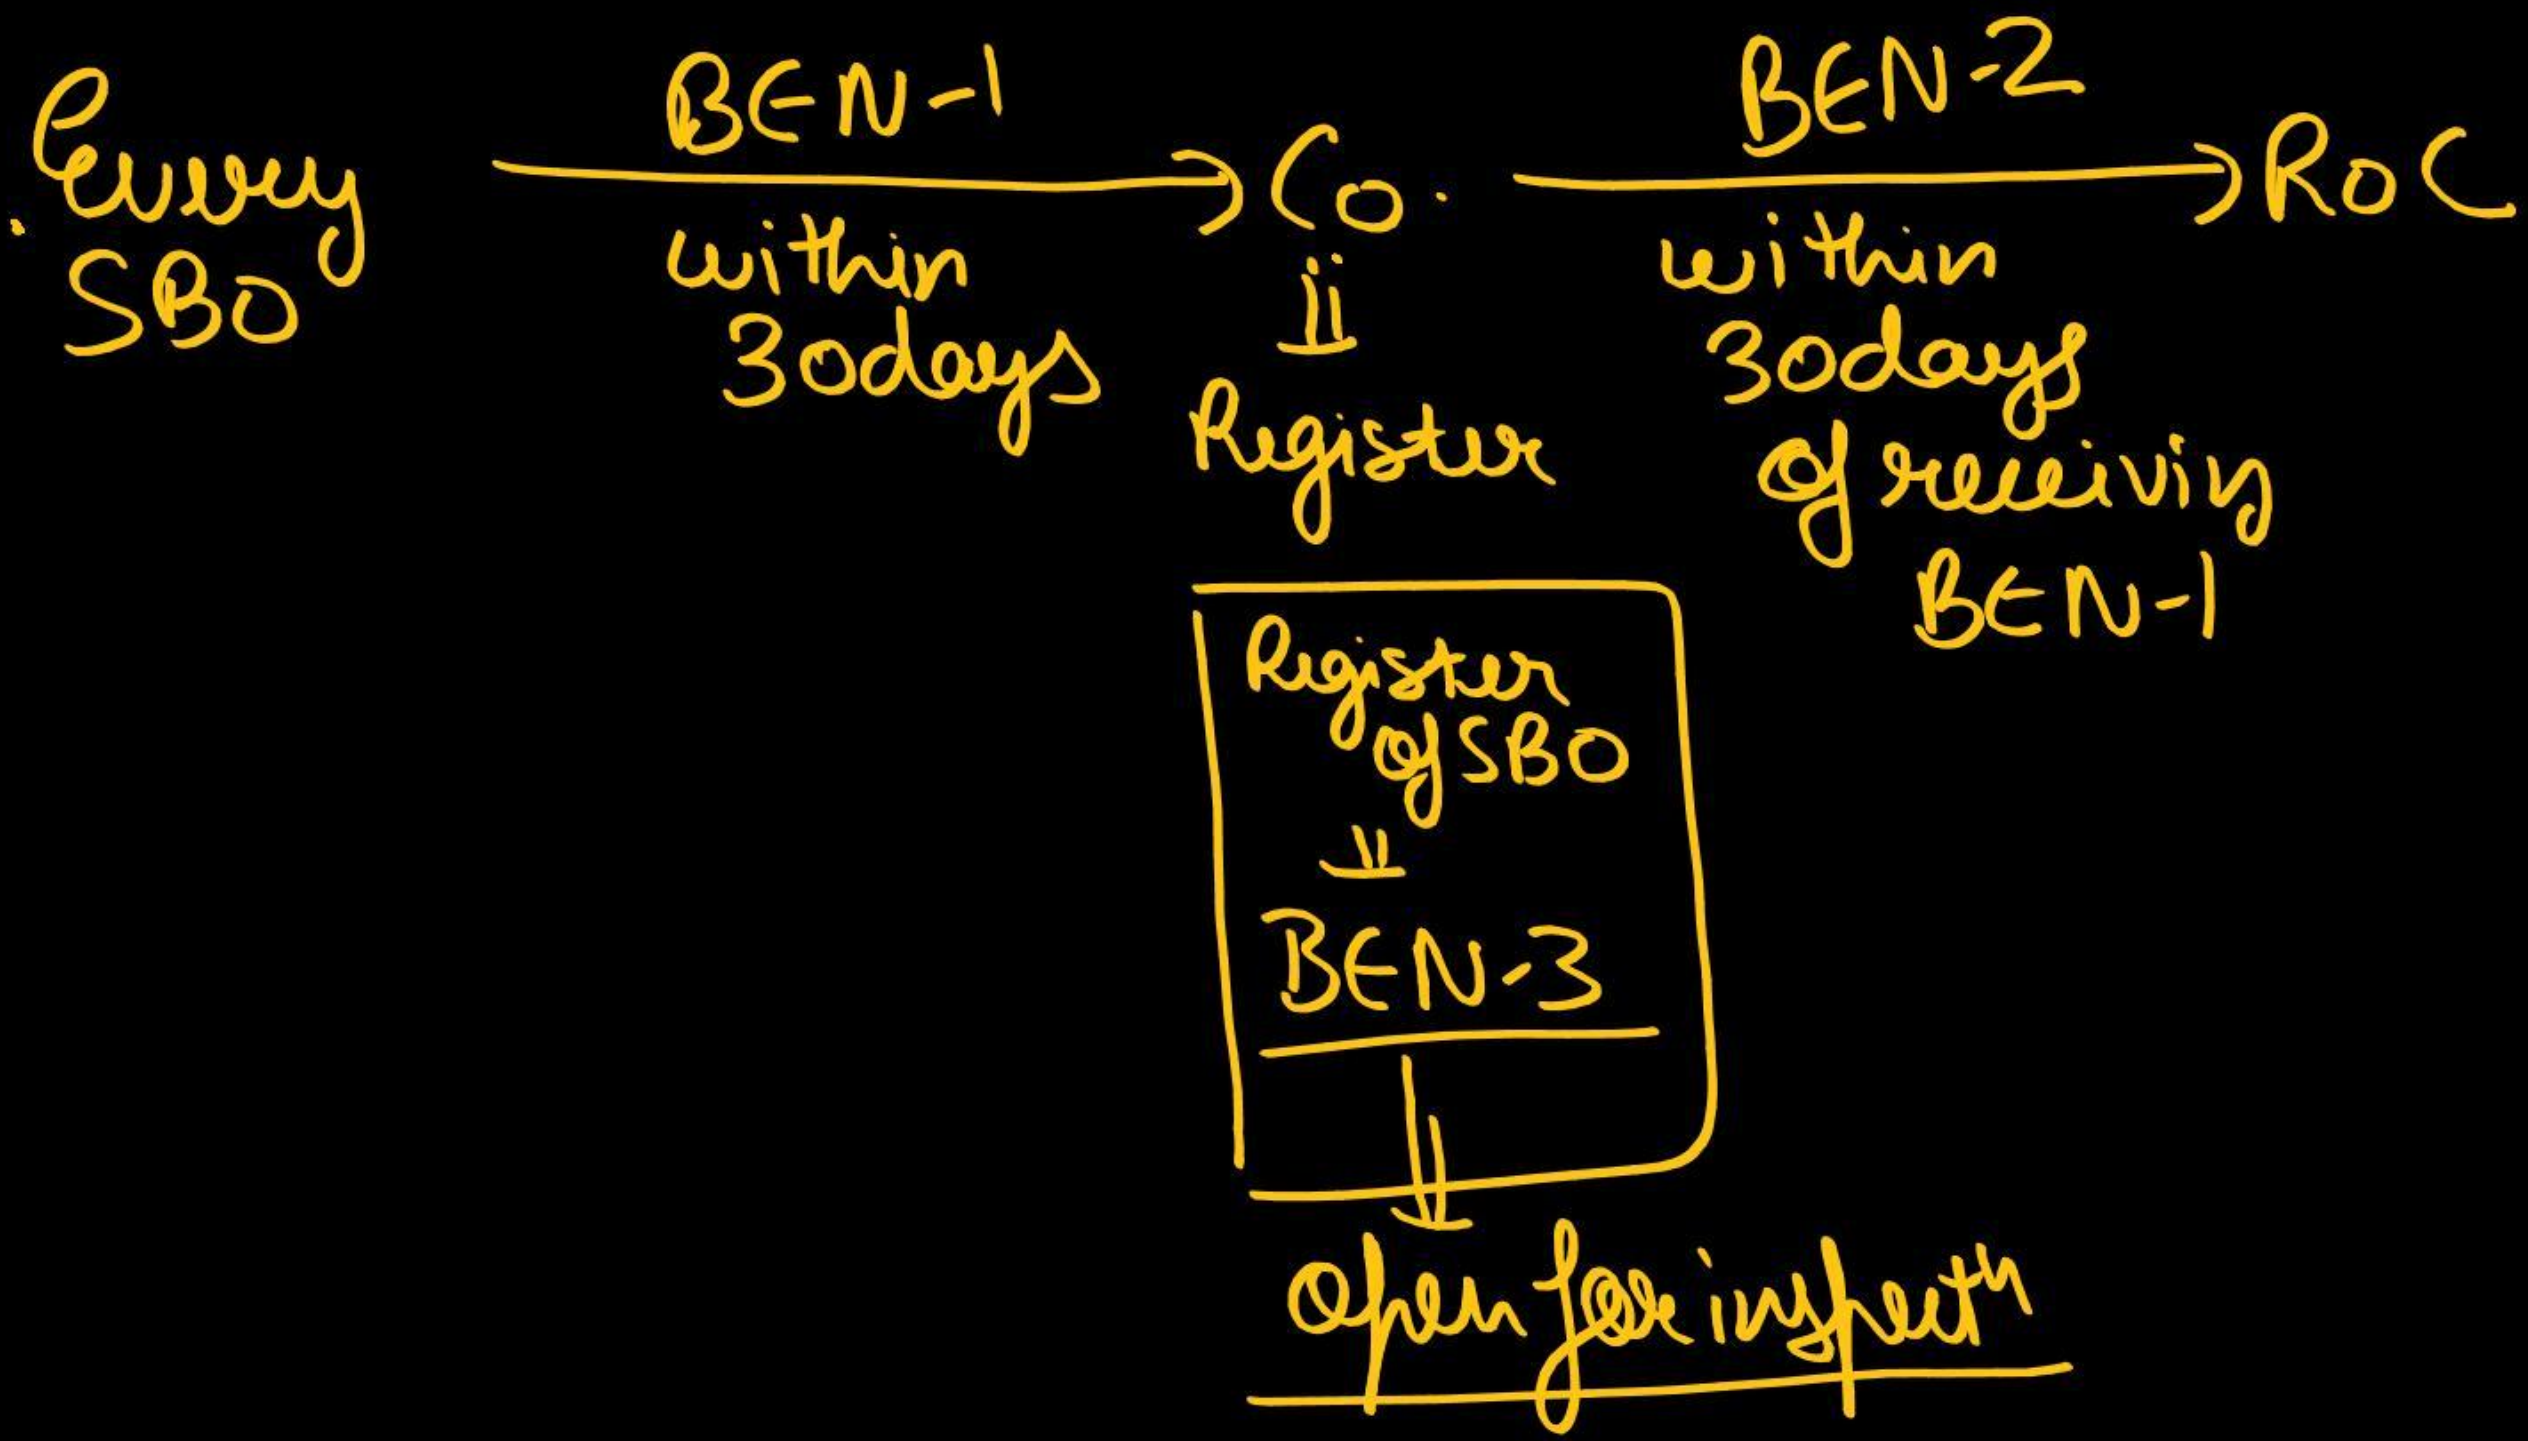 Every
SBO
BEN-1
within
30days
Co.
Register
BEN-2
within
30days
of receiving
BEN-1
ROC
Register
of SBO
BEN-3
Open for inspectn